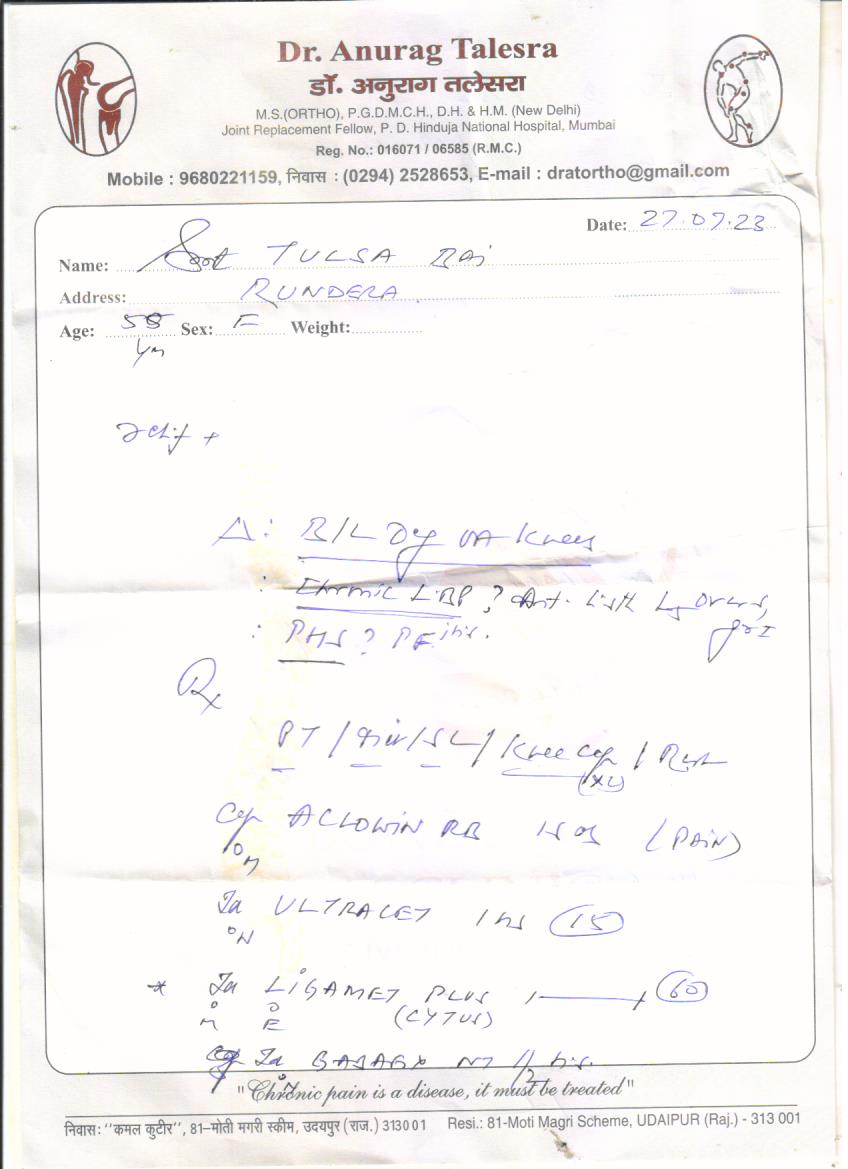 Dr. Anurag Talesra
डॉ. अनुराग तलेसरा
M.S.(ORTHO), P.G.D.M.C.H., D.H. & H.M. (New Delhi)
Joint Replacement Fellow, P. D. Hinduja National Hospital, Mumbai
Reg. No.: 016071 / 06585 (R.M.C.)
Mobile : 9680221159, निवास : (0294) 2528653, E-mail : dratortho@gmail.com
Date: 27.07.23
Name: TULSA Bai
Address: RUNDERA
Age: 58 Sex: F Weight:
Yrs
Δ: B/L Dg OA Knees
: Chronic LBP ?
: PHS ? PF itis.
Rx
PT / / SL / Knee Cap / Rest
(XL)
Cap ACLOWIN RB 1 SOS (PAIN)
10 M
Ta ULTRACET 1 HS (15)
0 N
* Ta LIGAMET PLUS 1 — + (60)
M E (CYTUS)
Ta NT 1/2 HS
"Chronic pain is a disease, it must be treated"
निवास: "कमल कुटीर", 81–मोती मगरी स्कीम, उदयपुर (राज.) 313001 Resi.: 81-Moti Magri Scheme, UDAIPUR (Raj.) - 313 001